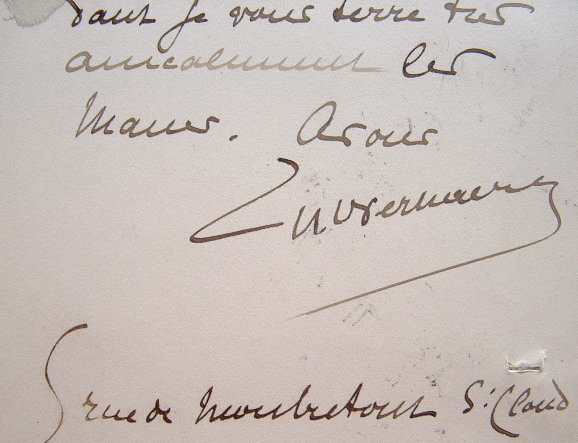 dant je vous serre très
amicalement les
Mains. A vous
5 rue de Montretout St Cloud